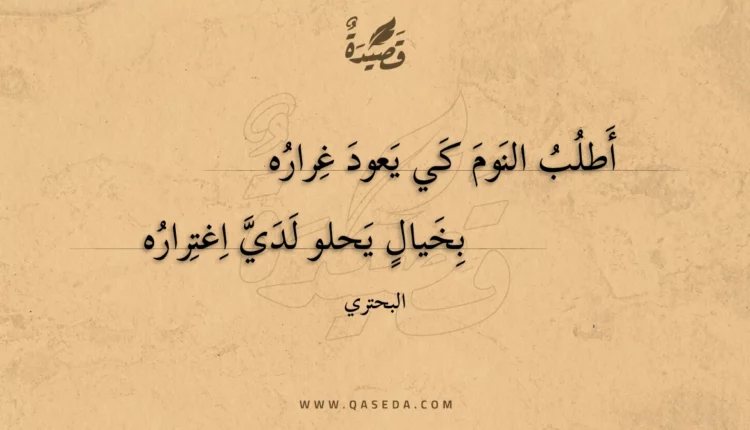 قَصِيْدَةٌ
أَطلُبُ النَومَ كَي يَعودَ غِرارُه
بِخَيالٍ يَحلو لَدَيَّ اِغتِرارُه
البحتري
WWW.QASEDA.COM